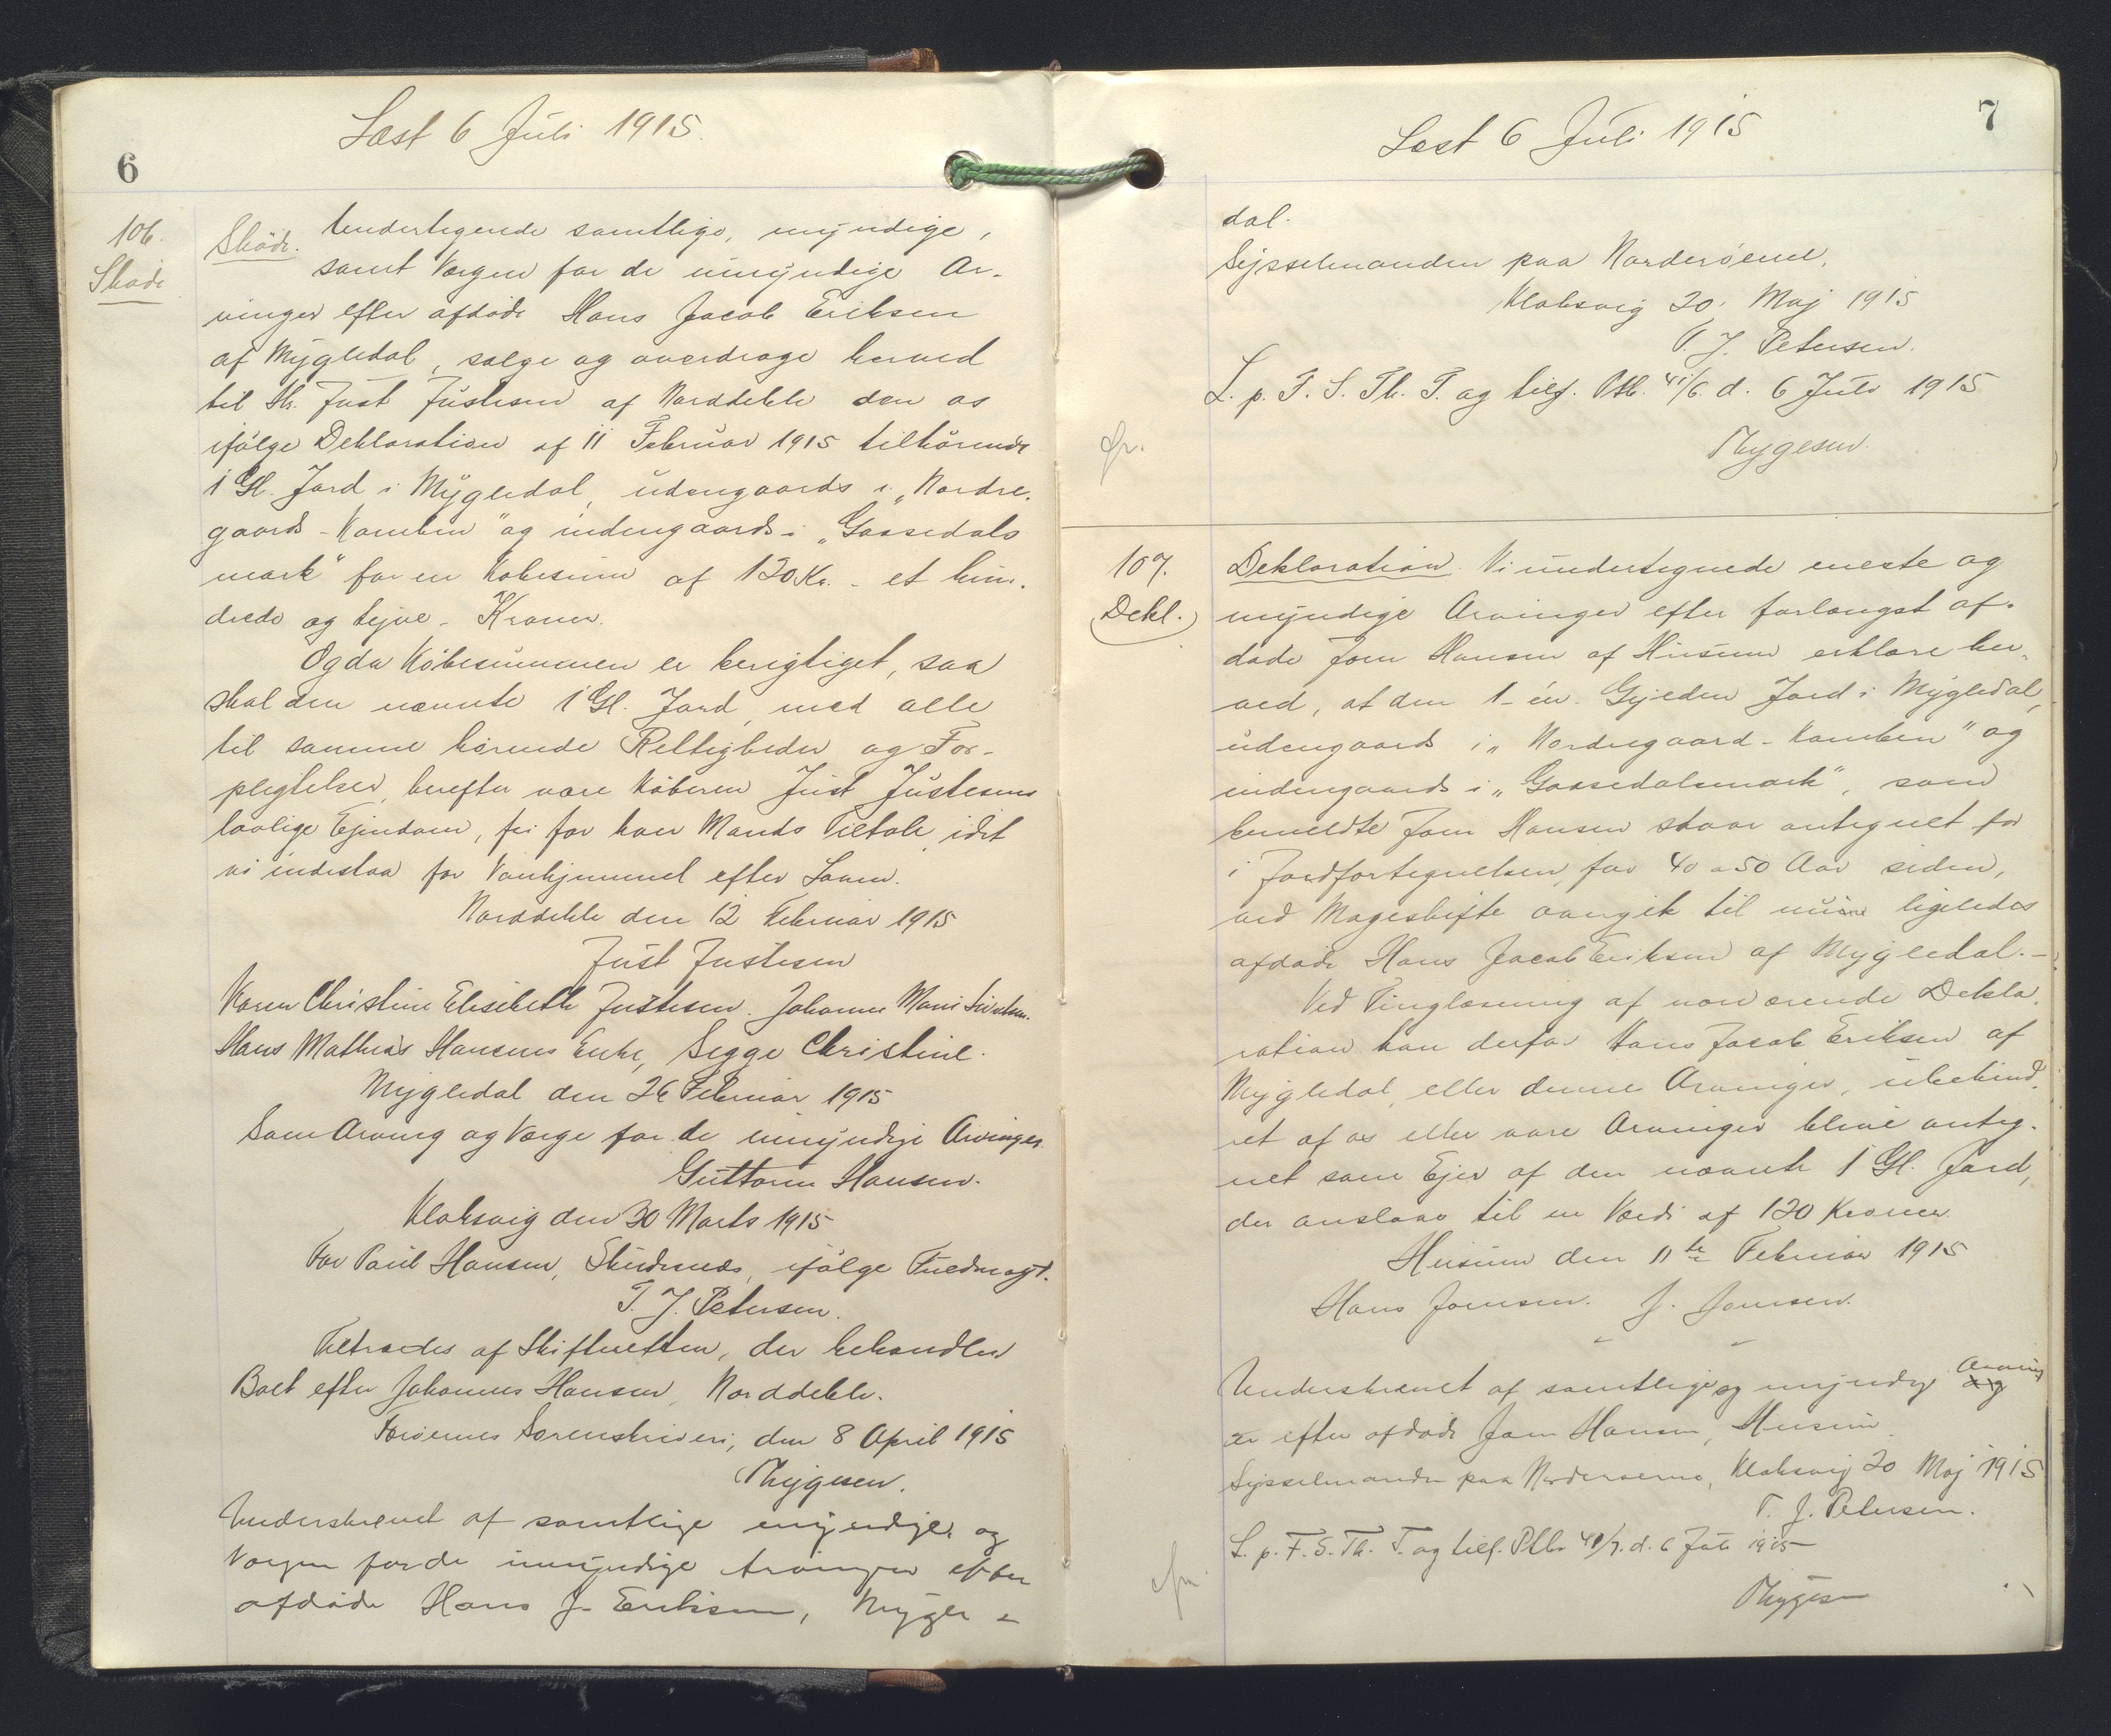 6
Læst 6 Juli 1915.
106.
Skøde
Skøde. Undertegnede samtlige, myndige,
samt Værgen for de umyndige Ar-
vinger efter afdøde Hans Jacob Eriksen
af Mygledal, sælge og overdrage herved
til Hr. Just Justesen af Norddeble den os
ifølge Deklaration af 11 Februar 1915 tilhørende
1 Gl. Jord i Mygledal, udengaards i "Nordre-
gaards-Kamben" og indengaards i "Gaasedals
mark" for en Købesum af 120 Kr. - et hun-
drede og tyve - Kroner.
Og da Købesummen er berigtiget, saa
skal den nævnte 1 Gl. Jord, med alle
til samme hørende Rettigheder og For-
pligtelser, herefter være Køberen Just Justesens
lovlige Ejendom, fri for hver Mands Tiltale, idet
vi indestaa for Vanhjemmel efter Loven.
Norddeble den 12 Februar 1915
Just Justesen
Karen Christine Elisebeth Justesen. Johanne Marie
Hans Mathias Hansens Enke, Segge Christine.
Mygledal den 26 Februar 1915
Som Arving og Værge for de umyndige Arvinger.
Guttorm Hansen.
Klaksvig den 30 Marts 1915
For Poul Hansen, Skudenæs, ifølge Fuldmagt.
T. J. Petersen.
Tiltrædes af Skifteretten, der behandler
Boet efter Johannes Hansen, Norddeble.
Færøernes Sorenskriveri, den 8 April 1915
Thygesen.
Underskrevet af samtlige myndige og
Værgen for de umyndige Arvinger efter
afdøde Hans J. Eriksen, Mygle-
7
Læst 6 Juli 1915
dal.
Sysselmanden paa Norderøerne,
Klaksvig 20. Maj 1915
T. J. Petersen.
L. p. F. S. Th. T. og tilf. Ptb. 41/6. d. 6 Juli 1915
Thygesen.
107.
Dekl.
Deklaration. Vi undertegnede eneste og
myndige Arvinger efter forlængst af-
døde Joen Hansen af Husum erklære her-
ved, at den 1 - én - Gylden Jord i Mygledal,
udengaards i "Nordregaard-Kamben" og
indengaards i "Gaasedalsmark", som
bemeldte Joen Hansen staar antegnet for
i Jordfortegnelsen, for 40 a 50 Aar siden,
ved Mageskifte overgik til nu ligeledes
afdøde Hans Jacob Eriksen af Mygledal.-
Ved Tinglæsning af nærværende Dekla-
ration kan derfor Hans Jacob Eriksen af
Mygledal, eller dennes Arvinger, ubehind-
ret af os eller vore Arvinger blive anteg-
net som Ejer af den nævnte 1 Gl. Jord,
der anslaas til en Værdi af 120 Kroner
Husum den 11te Februar 1915
Hans Joensen. J. Joensen.
Underskrevet af samtlige og myndige Arving
er efter afdøde Joen Hansen, Husum
Sysselmanden paa Norderøerne, Klaksvig 20 Maj 1915
T. J. Petersen.
L. p. F. S. Th. T. og tilf. Ptb. 41/7. d. 6 Juli 1915
Thygesen